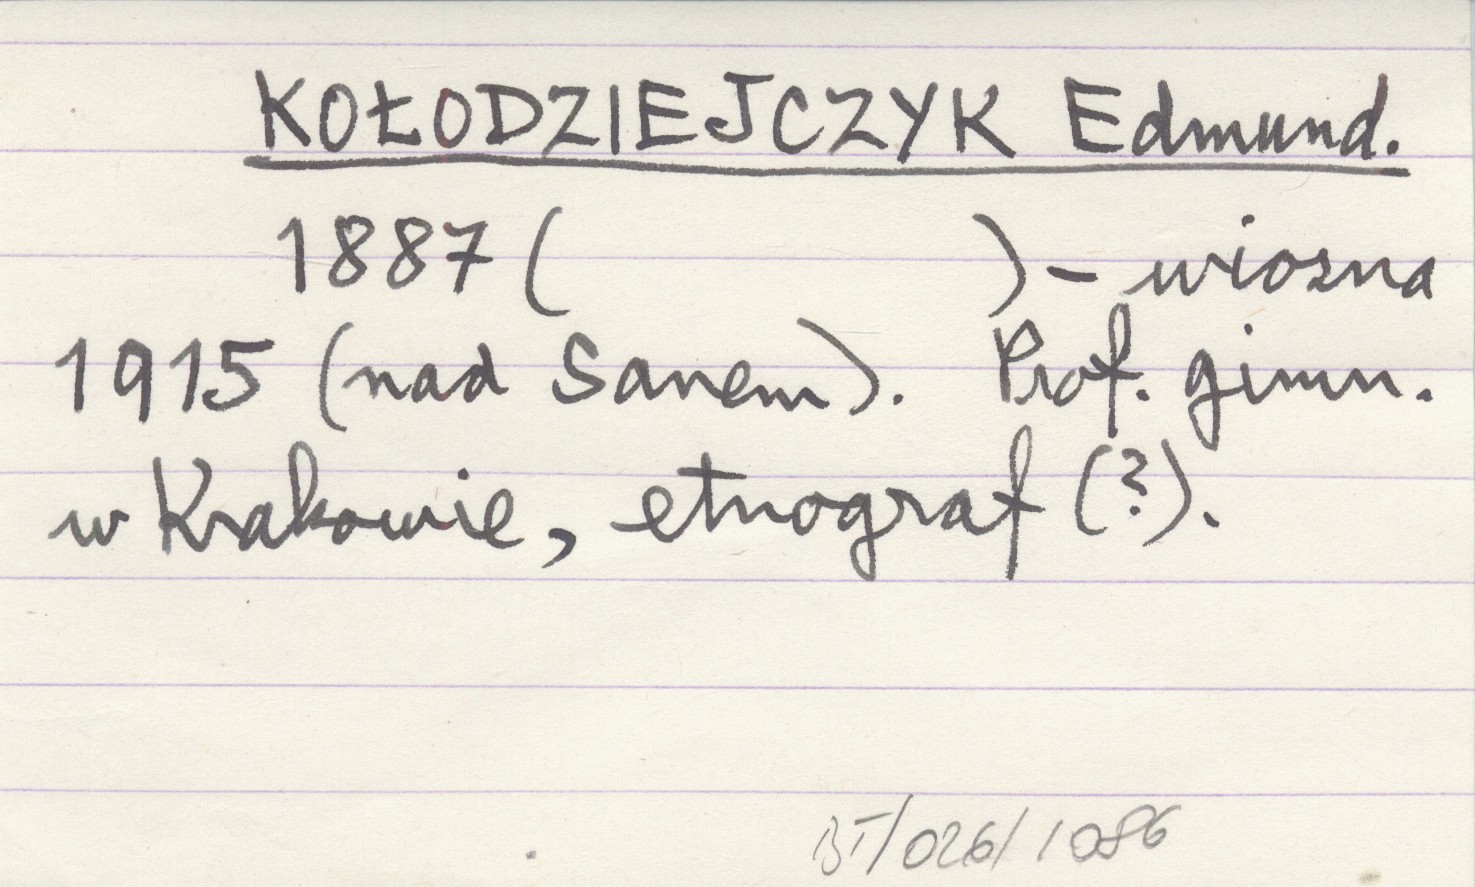 KOŁODZIEJCZYK Edmund.
1887 (                    ) - wiosna
1915 (nad Sanem). Prof. gimn.
w Krakowie, etnograf (?).
BT/026/1086